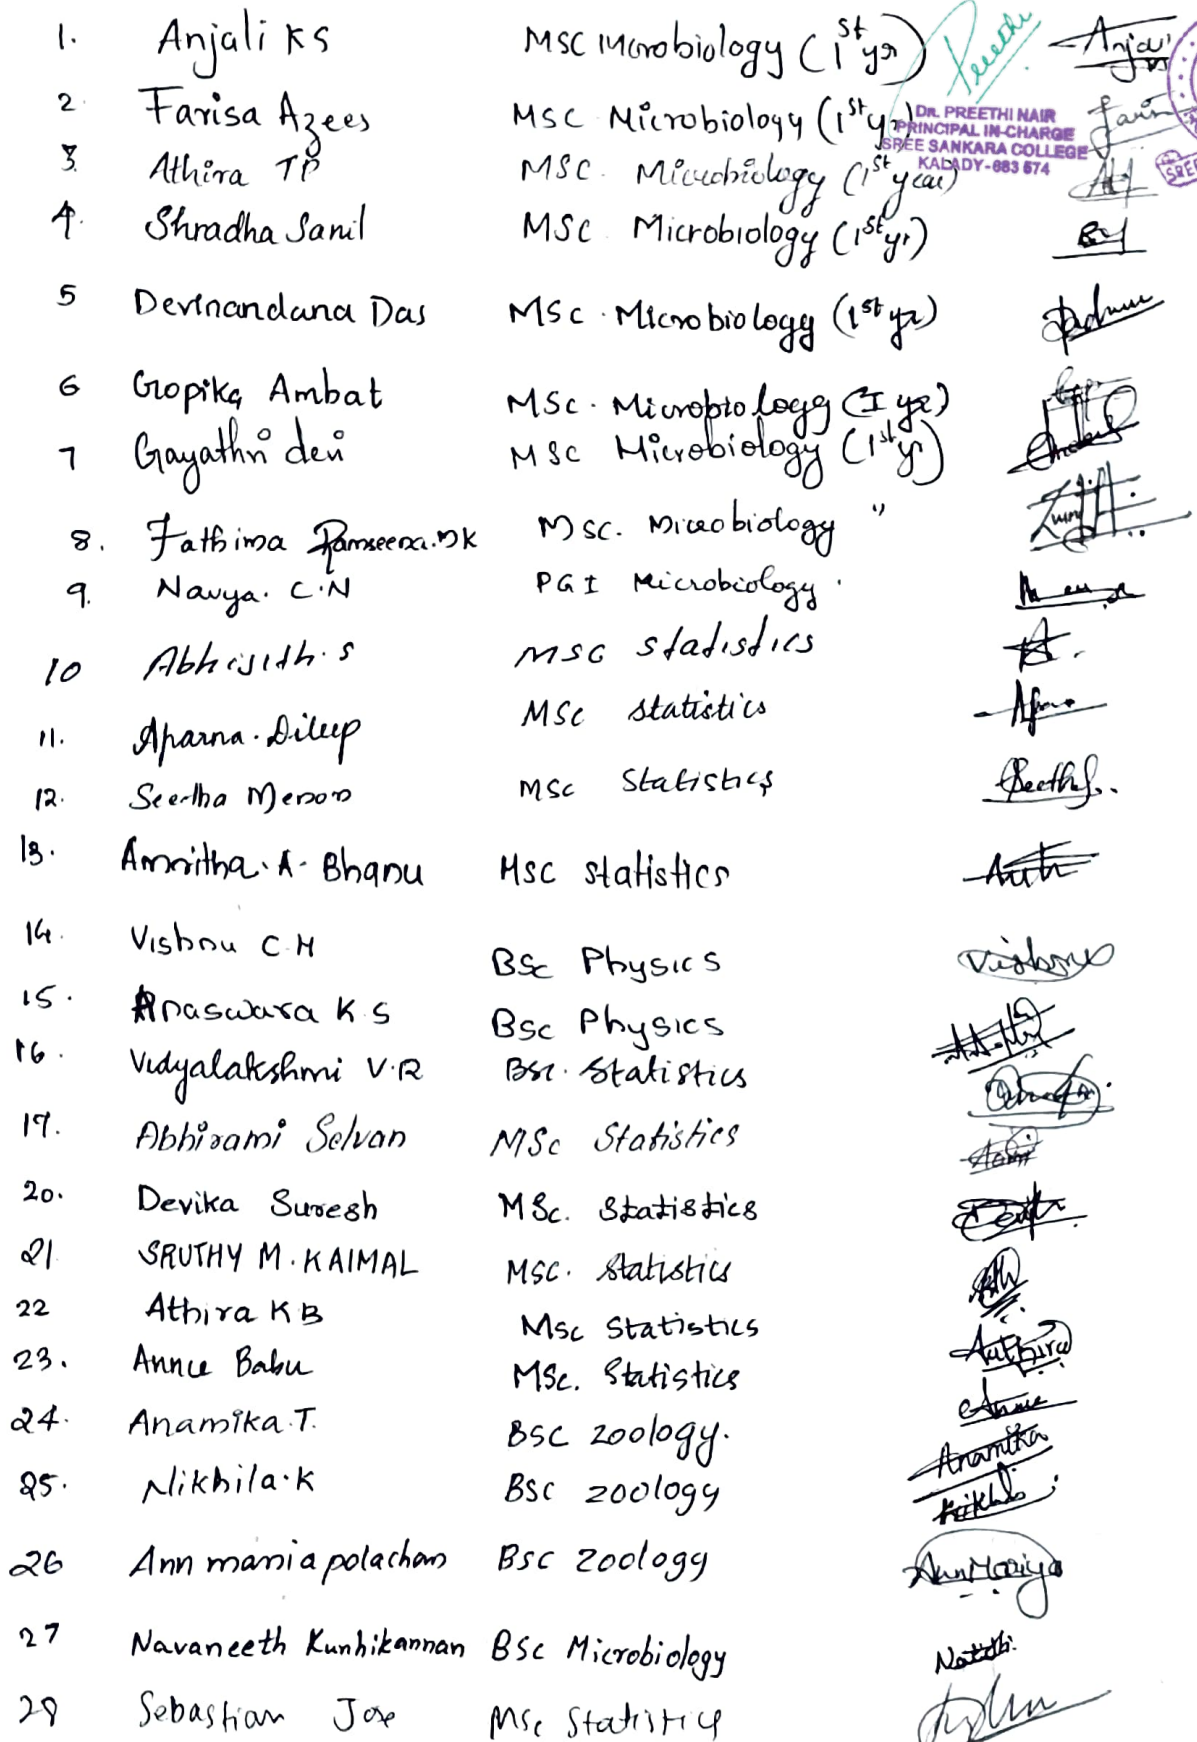 1. Anjali KS MSC Microbiology (1st yr) Preethi Anjali
2. Farisa Azees MSC Microbiology (1st yr) Faris
DR. PREETHI NAIR
PRINCIPAL IN-CHARGE
SREE SANKARA COLLEGE
KALADY-683 574
SREE
3. Athira TP MSC. Microbiology (1st year)
4. Shradha Sanil MSC Microbiology (1st yr)
5 Devinandana Das MSc. Microbiology (1st yr)
6 Gopika Ambat MSc. Microbiology (I yr)
7 Gayathri devi MSC Microbiology (1st yr)
8. Fathima Ramseena. MSC. Microbiology "
9. Navya. C.N PG I Microbiology.
10 Abhijith.S MSC statistics A.
11. Aparna. Dileep MSc statistics
12. Seetha Menon MSc Statistics Seetha
13. Amritha. A. Bhanu MSC statistics
14. Vishnu C.H BSc Physics Vishnu
15. Anaswara K.S BSc Physics
16. Vidyalakshmi V.R BSc. Statistics
17. Abhirami Selvan MSc Statistics
20. Devika Suresh MSc. Statistics
21 SRUTHY M. KAIMAL MSC. Statistics
22 Athira KB Msc Statistics Authira
23. Annie Babu MSc. Statistics Annie
24. Anamika.T. BSC zoology. Anamika
25. Nikhila.K BSC zoology Nikhila
26 Ann maria polachan BSC zoology AnnMariya
27 Navaneeth Kunhikannan BSC Microbiology
28 Sebastian Jose MSc Statistics